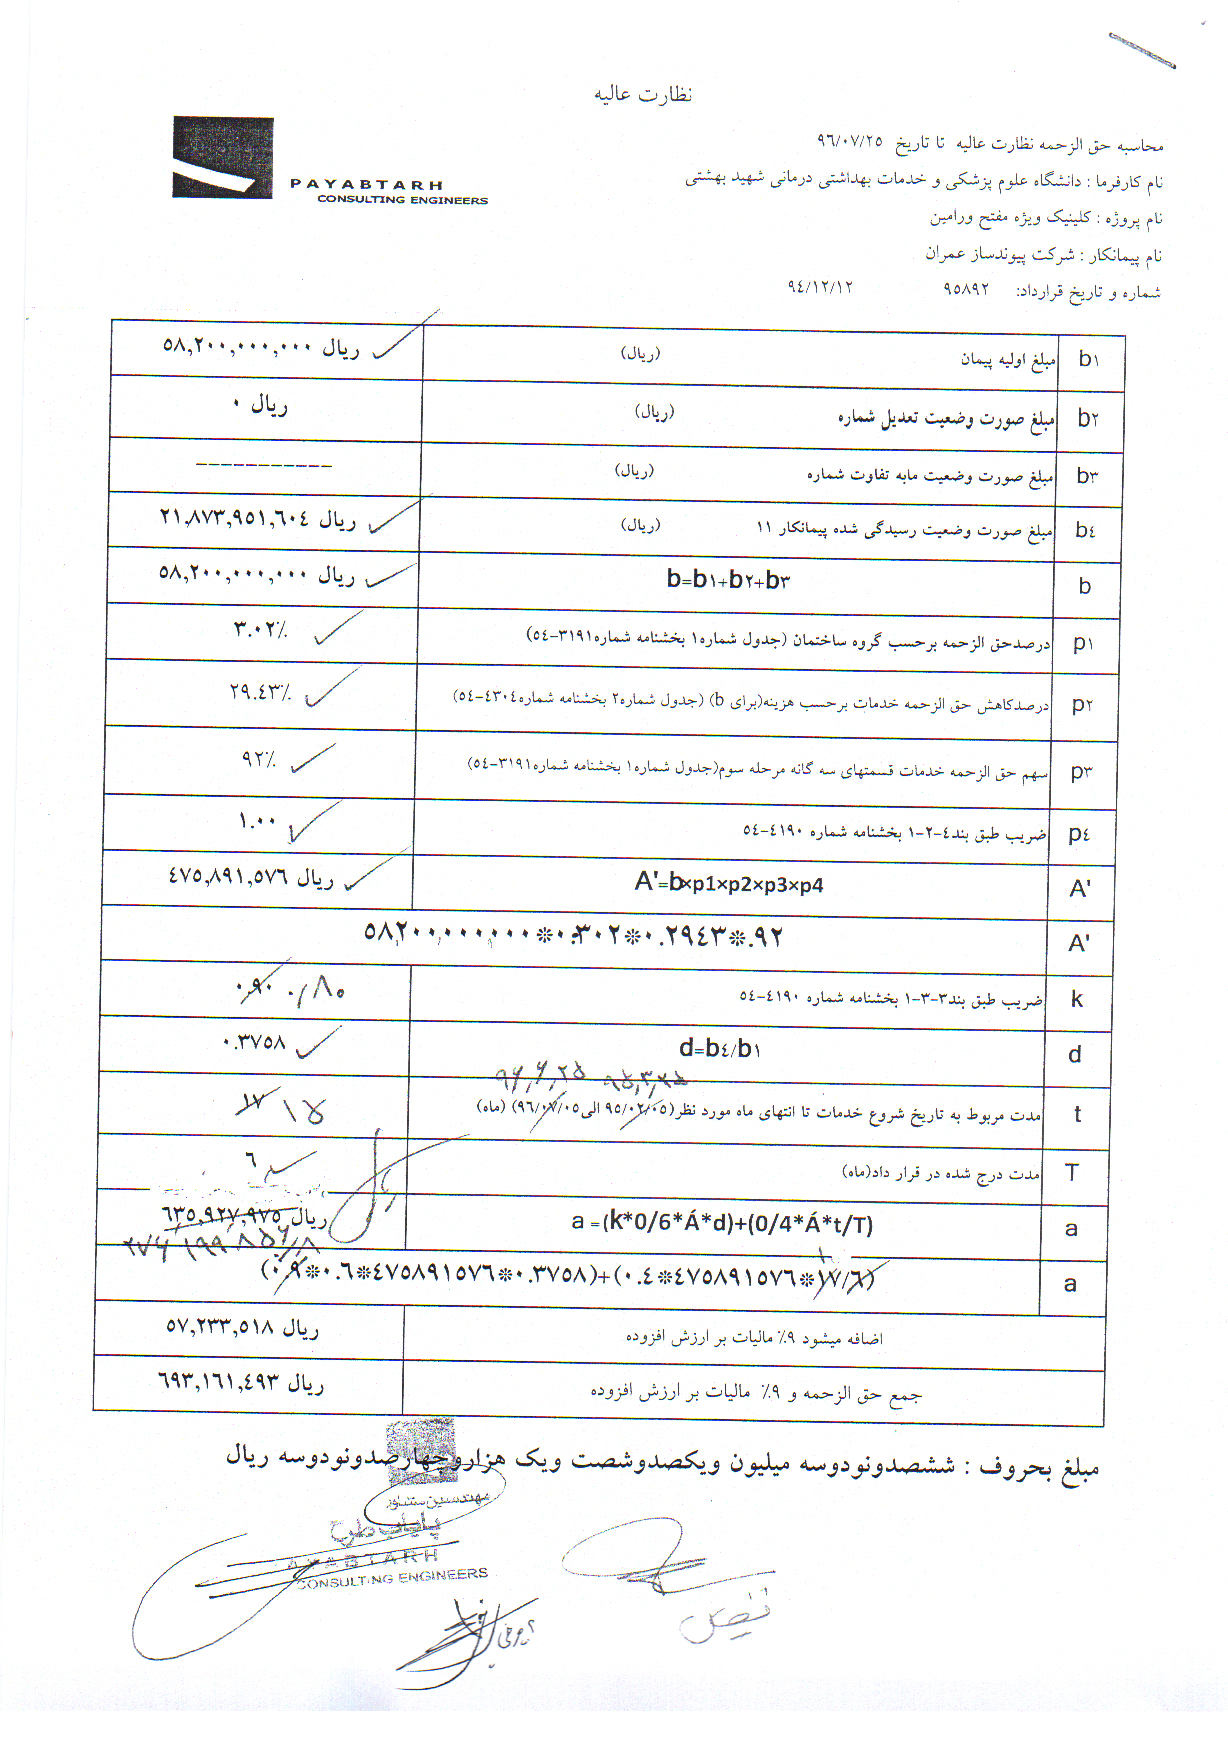 نظارت عالیه
PAYABTARH
CONSULTING ENGINEERS
محاسبه حق الزحمه نظارت عالیه تا تاریخ ۹۶/۰۷/۲۵
نام کارفرما : دانشگاه علوم پزشکی و خدمات بهداشتی درمانی شهید بهشتی
نام پروژه : کلینیک ویژه مفتح ورامین
نام پیمانکار : شرکت پیوندساز عمران
شماره و تاریخ قرارداد: ۹۵۸۹۲ ۹۴/۱۲/۱۲
b۱ مبلغ اولیه پیمان (ریال) ۵۸,۲۰۰,۰۰۰,۰۰۰ ریال
b۲ مبلغ صورت وضعیت تعدیل شماره (ریال) ۰ ریال
b۳ مبلغ صورت وضعیت مابه تفاوت شماره (ریال) -----------
b٤ مبلغ صورت وضعیت رسیدگی شده پیمانکار ۱۱ (ریال) ۲۱,۸۷۳,۹۵۱,٦۰٤ ریال
b b=b۱+b۲+b۳ ۵۸,۲۰۰,۰۰۰,۰۰۰ ریال
p۱ درصدحق الزحمه برحسب گروه ساختمان (جدول شماره۱ بخشنامه شماره۳۱۹۱-۵٤) ۳.۰۲٪
p۲ درصدکاهش حق الزحمه خدمات برحسب هزینه(برای b) (جدول شماره۲ بخشنامه شماره٤۳۰٤-۵٤) ۲۹.٤۳٪
p۳ سهم حق الزحمه خدمات قسمتهای سه گانه مرحله سوم(جدول شماره۱ بخشنامه شماره۳۱۹۱-۵٤) ۹۲٪
p٤ ضریب طبق بند٤-۲-۱ بخشنامه شماره ٤۱۹۰-۵٤ ۱.۰۰
A' A'=b×p1×p2×p3×p4 ٤۷۵,۸۹۱,۵۷٦ ریال
A' ۵۸,۲۰۰,۰۰۰,۰۰۰*۰.۳۰۲*۰.۲۹٤۳*.۹۲
k ضریب طبق بند۳-۳-۱ بخشنامه شماره ٤۱۹۰-۵٤ ۰.۹۰ ۰/۸۰
d d=b٤/b۱ ۰.۳۷۵۸
۹۵,۳,۲۵ ۹۶,۶,۲۵
t مدت مربوط به تاریخ شروع خدمات تا انتهای ماه مورد نظر(۹۵/۰۲/۰۵ الی۹۶/۰۷/۰۵) (ماه) ۱۷ ۱۵
T مدت درج شده در قرار داد(ماه) ٦
a a =(k*0/6*Á*d)+(0/4*Á*t/T) ٦۳۵,۹۲۷,۹۷۵ ریال
a (۰.۹*۰.٦*٤۷۵۸۹۱۵۷٦*۰.۳۷۵۸)+(۰.٤*٤۷۵۸۹۱۵۷٦*۱۷/٦) ۱
اضافه میشود ۹٪ مالیات بر ارزش افزوده ۵۷,۲۳۳,۵۱۸ ریال
جمع حق الزحمه و ۹٪ مالیات بر ارزش افزوده ٦۹۳,۱٦۱,٤۹۳ ریال
مبلغ بحروف : ششصدونودوسه میلیون ویکصدوشصت ویک هزاروچهارصدونودوسه ریال
مهندسین مشاور
پایاب طرح
AYABTARH
CONSULTING ENGINEERS